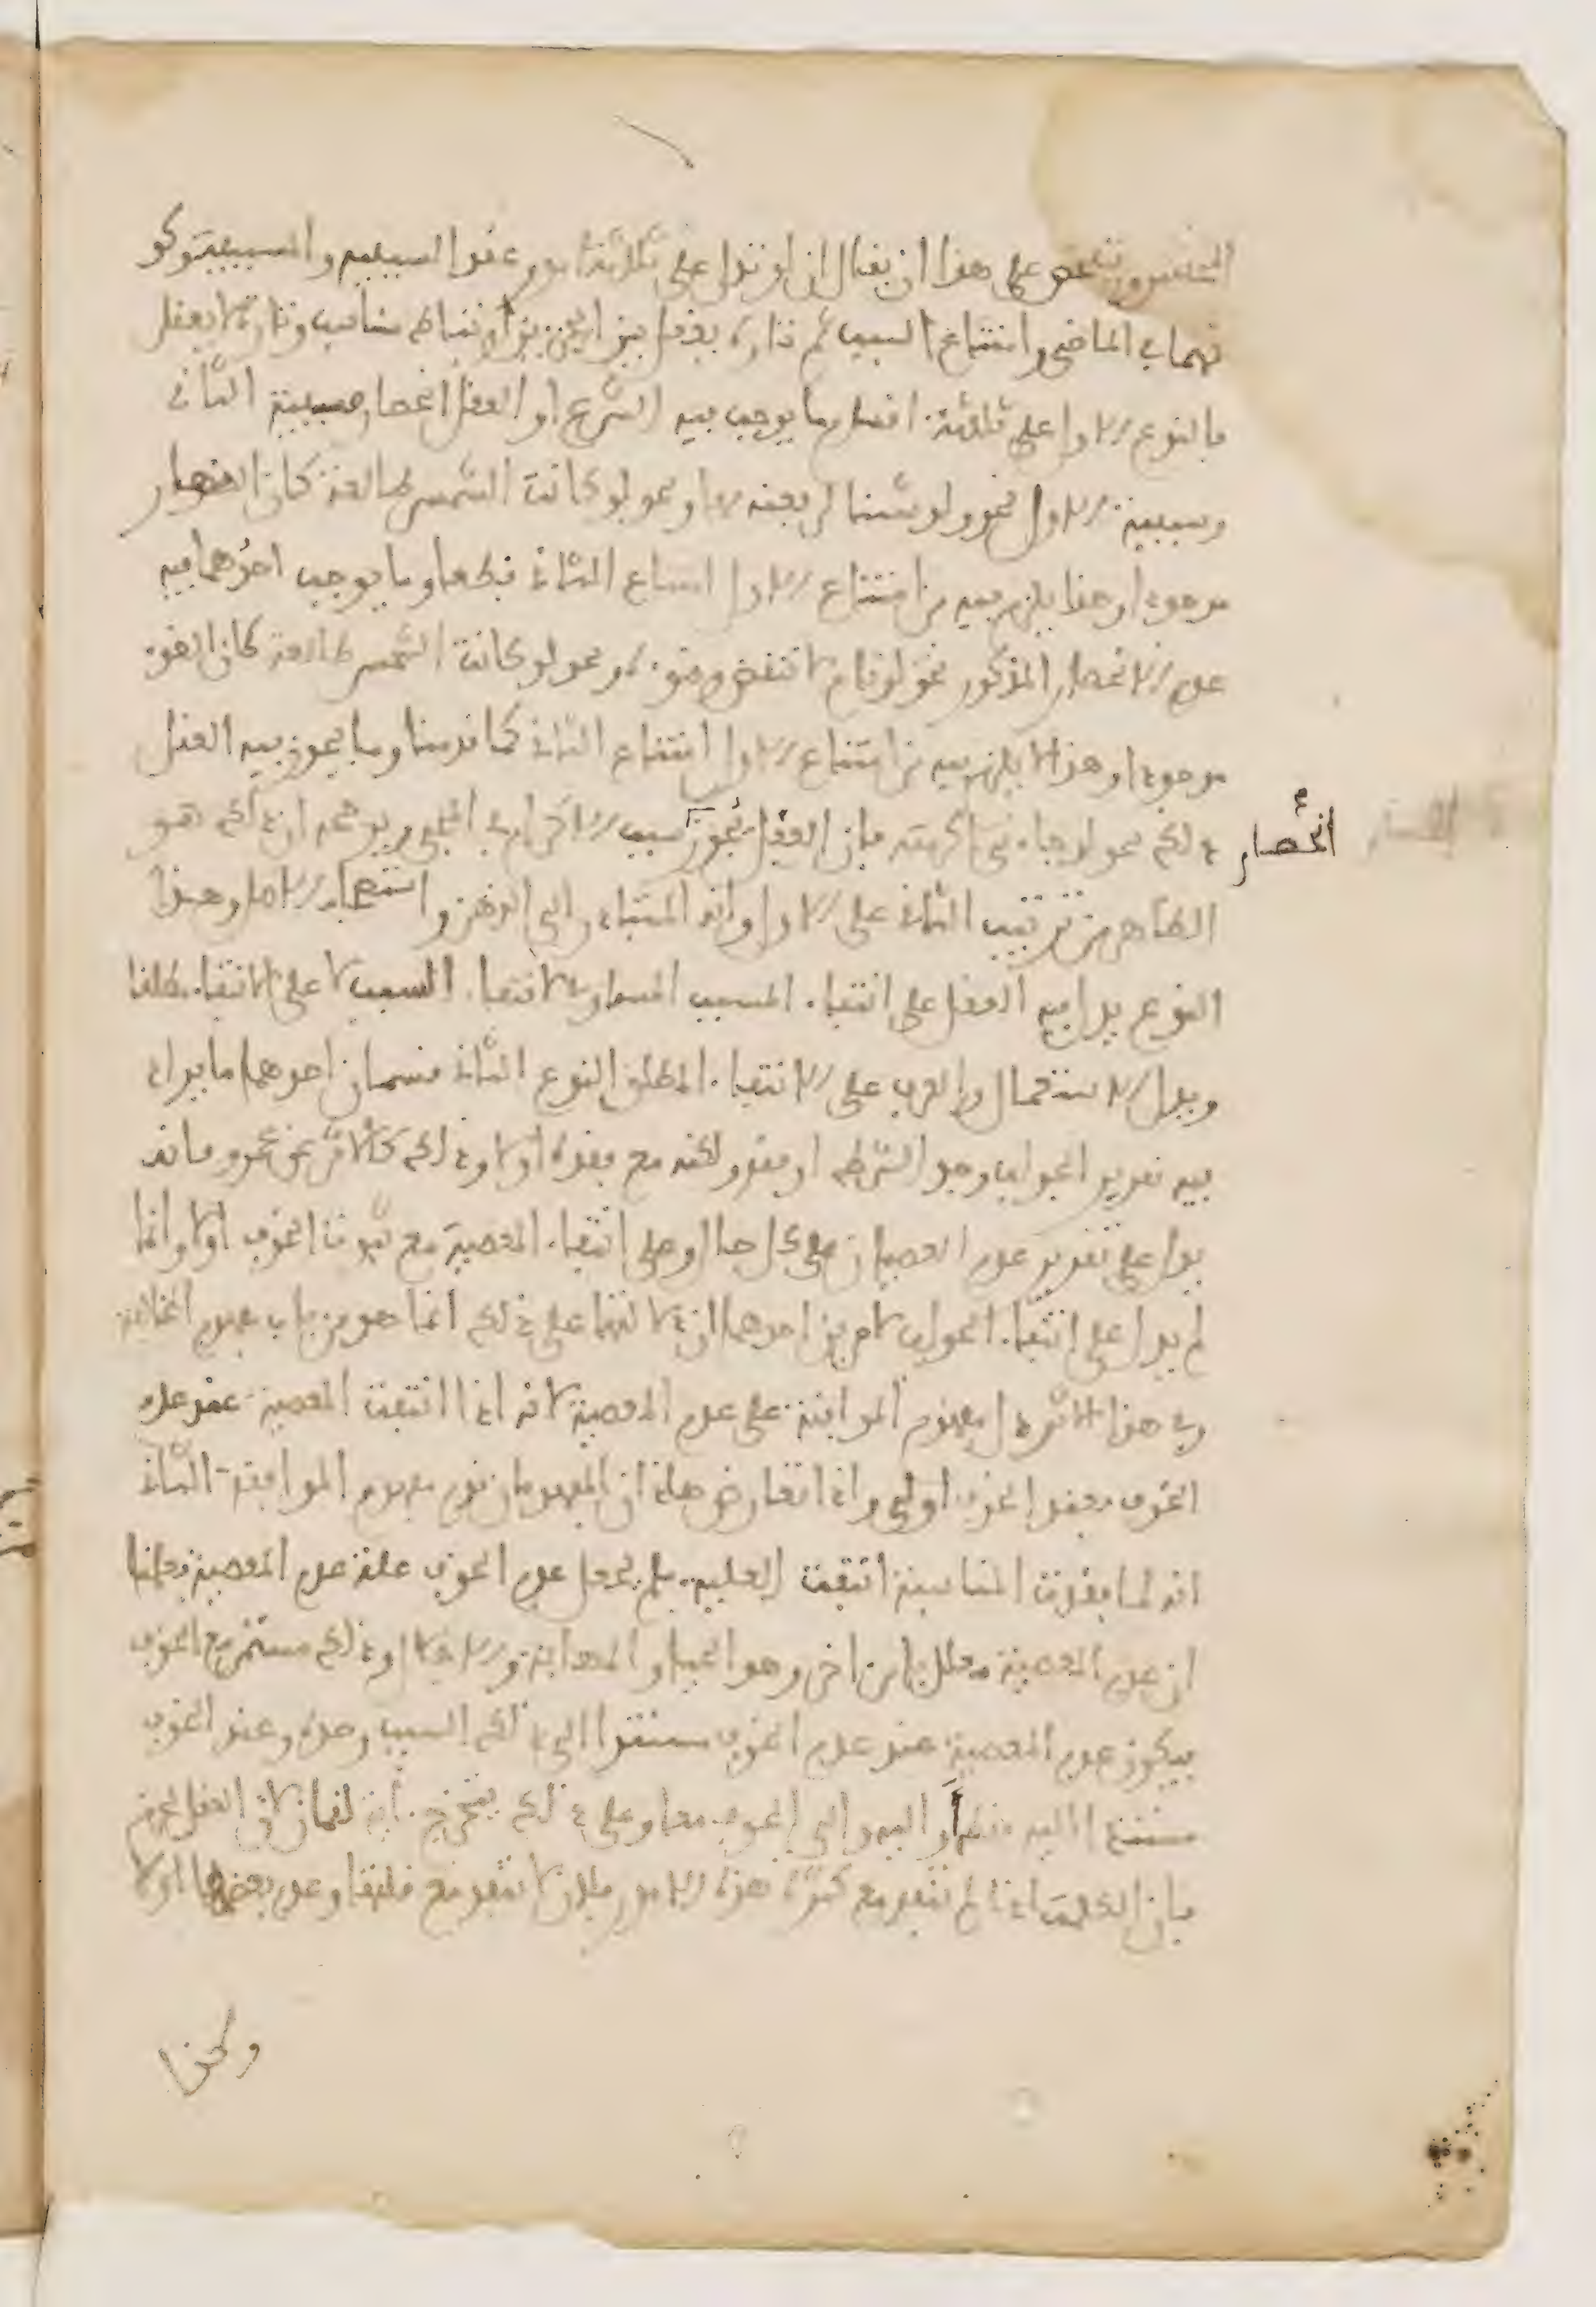 المحققين ويتلخص على هذا ان يقال ان لو تدل على ثلاثة امور عقد السببية والمسببية وكو
نهما في الماضي وامتناع السبب ثم تارة يعقل بين الجزءين ارتباط مناسب وتارة لا يعقل
فالنوع الاول على ثلاثة اقسام ما يوجب فيه الشرع او العقل انحصار مسببية الثاني
وسببية الاول نحو ولو شئنا لرفعنه بها ونحو لو كانت الشمس طالعة كان النهار
موجودا وهذا يلزم فيه من امتناع الاول امتناع الثاني قطعا وما يوجب احدهما فيه
عدم الانحصار المذكور نحو لو نام لانتقض وضوءه ونحو لو كانت الشمس طالعة كان الضوء
موجودا وهذا لا يلزم فيه من امتناع الاول امتناع الثاني كما قدمنا وما يجوز فيه العقل
ذلك نحو لو جاءني اكرمته فان العقل يجوز انحصار سبب الاكرام في المجيء ويرجحه ان ذلك هو
الظاهر من ترتيب الثاني على الاول وانه المتبادر الى الذهن واستصحاب الاصل وهذا
النوع يدل فيه العقل على انتفاء المسبب المساوي لانتفاء السبب لا على الانتفاء مطلقا
ويدل الاستعمال والعرف على الانتفاء المطلق النوع الثاني قسمان احدهما ما يراد
فيه تقرير الجواب وجد الشرط او فقد ولكنه مع فقده اولا وذلك كالاثر عن عمر فانه
يدل على تقرير عدم العصيان على كل حال وعلى انتفاء المعصية مع ثبوت الخوف اولا وانما
لم يدل على انتفاء الجواب لامرين احدهما ان دلالتهما على ذلك انما هو من باب مفهوم المخالفة
وفي هذا الاثر دل مفهوم الموافقة على عدم المعصية لانه اذا انتفت المعصية عند عدم
الخوف فعند الخوف اولى واذا تعارض هاذان المفهومان قدم مفهوم الموافقة الثاني
انه لما فقدت المناسبة انتفت العلية فلم يجعل عدم الخوف علة عدم المعصية فعلمنا
ان عدم المعصية معلل بامر اخر وهو الحياء والمهابة والاجلال وذلك مستمر مع الخوف
فيكون عدم المعصية عند عدم الخوف مستندا الى ذلك السبب وحده وعند الخوف
مستندا اليه فقط او اليه والى الخوف معا وعلى ذلك يتخرج اية لقمان لان العقل يجزم
بان الكلمات اذا لم تنفد مع كثرة هذه الامور فلان لا تنفد مع قلتها وعدم بعضها اولا
وكذا